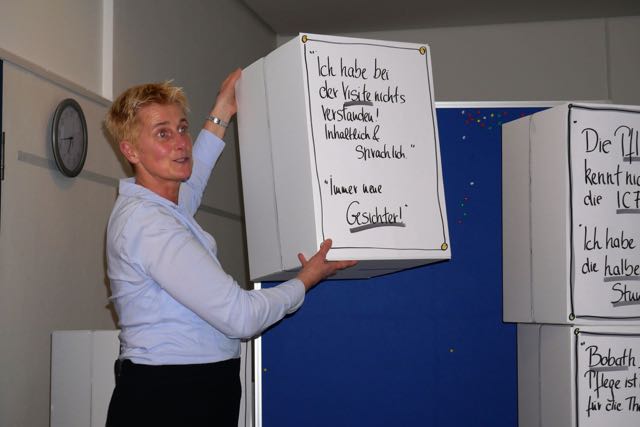 "Ich habe bei
der Visite nichts
verstanden!
Inhaltlich &
Sprachlich."
"Immer neue
Gesichter!"
"Die Pfl
kennt ni
die ICF
"Ich habe
die halbe
Stun
"Bobath
Pflege ist
für die Th